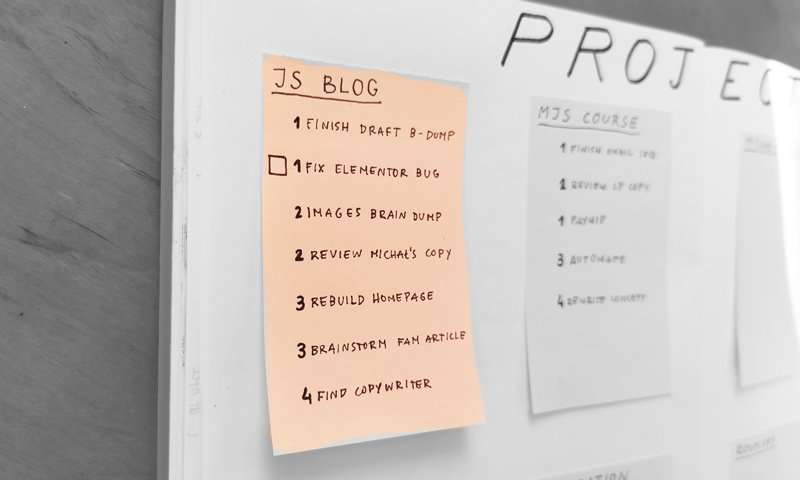 PROJECT
JS BLOG
1 FINISH DRAFT B-DUMP
1 FIX ELEMENTOR BUG
2 IMAGES BRAIN DUMP
2 REVIEW MICHAŁ'S COPY
3 REBUILD HOMEPAGE
3 BRAINSTORM FAM ARTICLE
4 FIND COPYWRITER
MJS COURSE
1 FINISH EMAIL
1 REVIEW LP COPY
1 PAYHIP
3 AUTOMATE
4 REWRITE